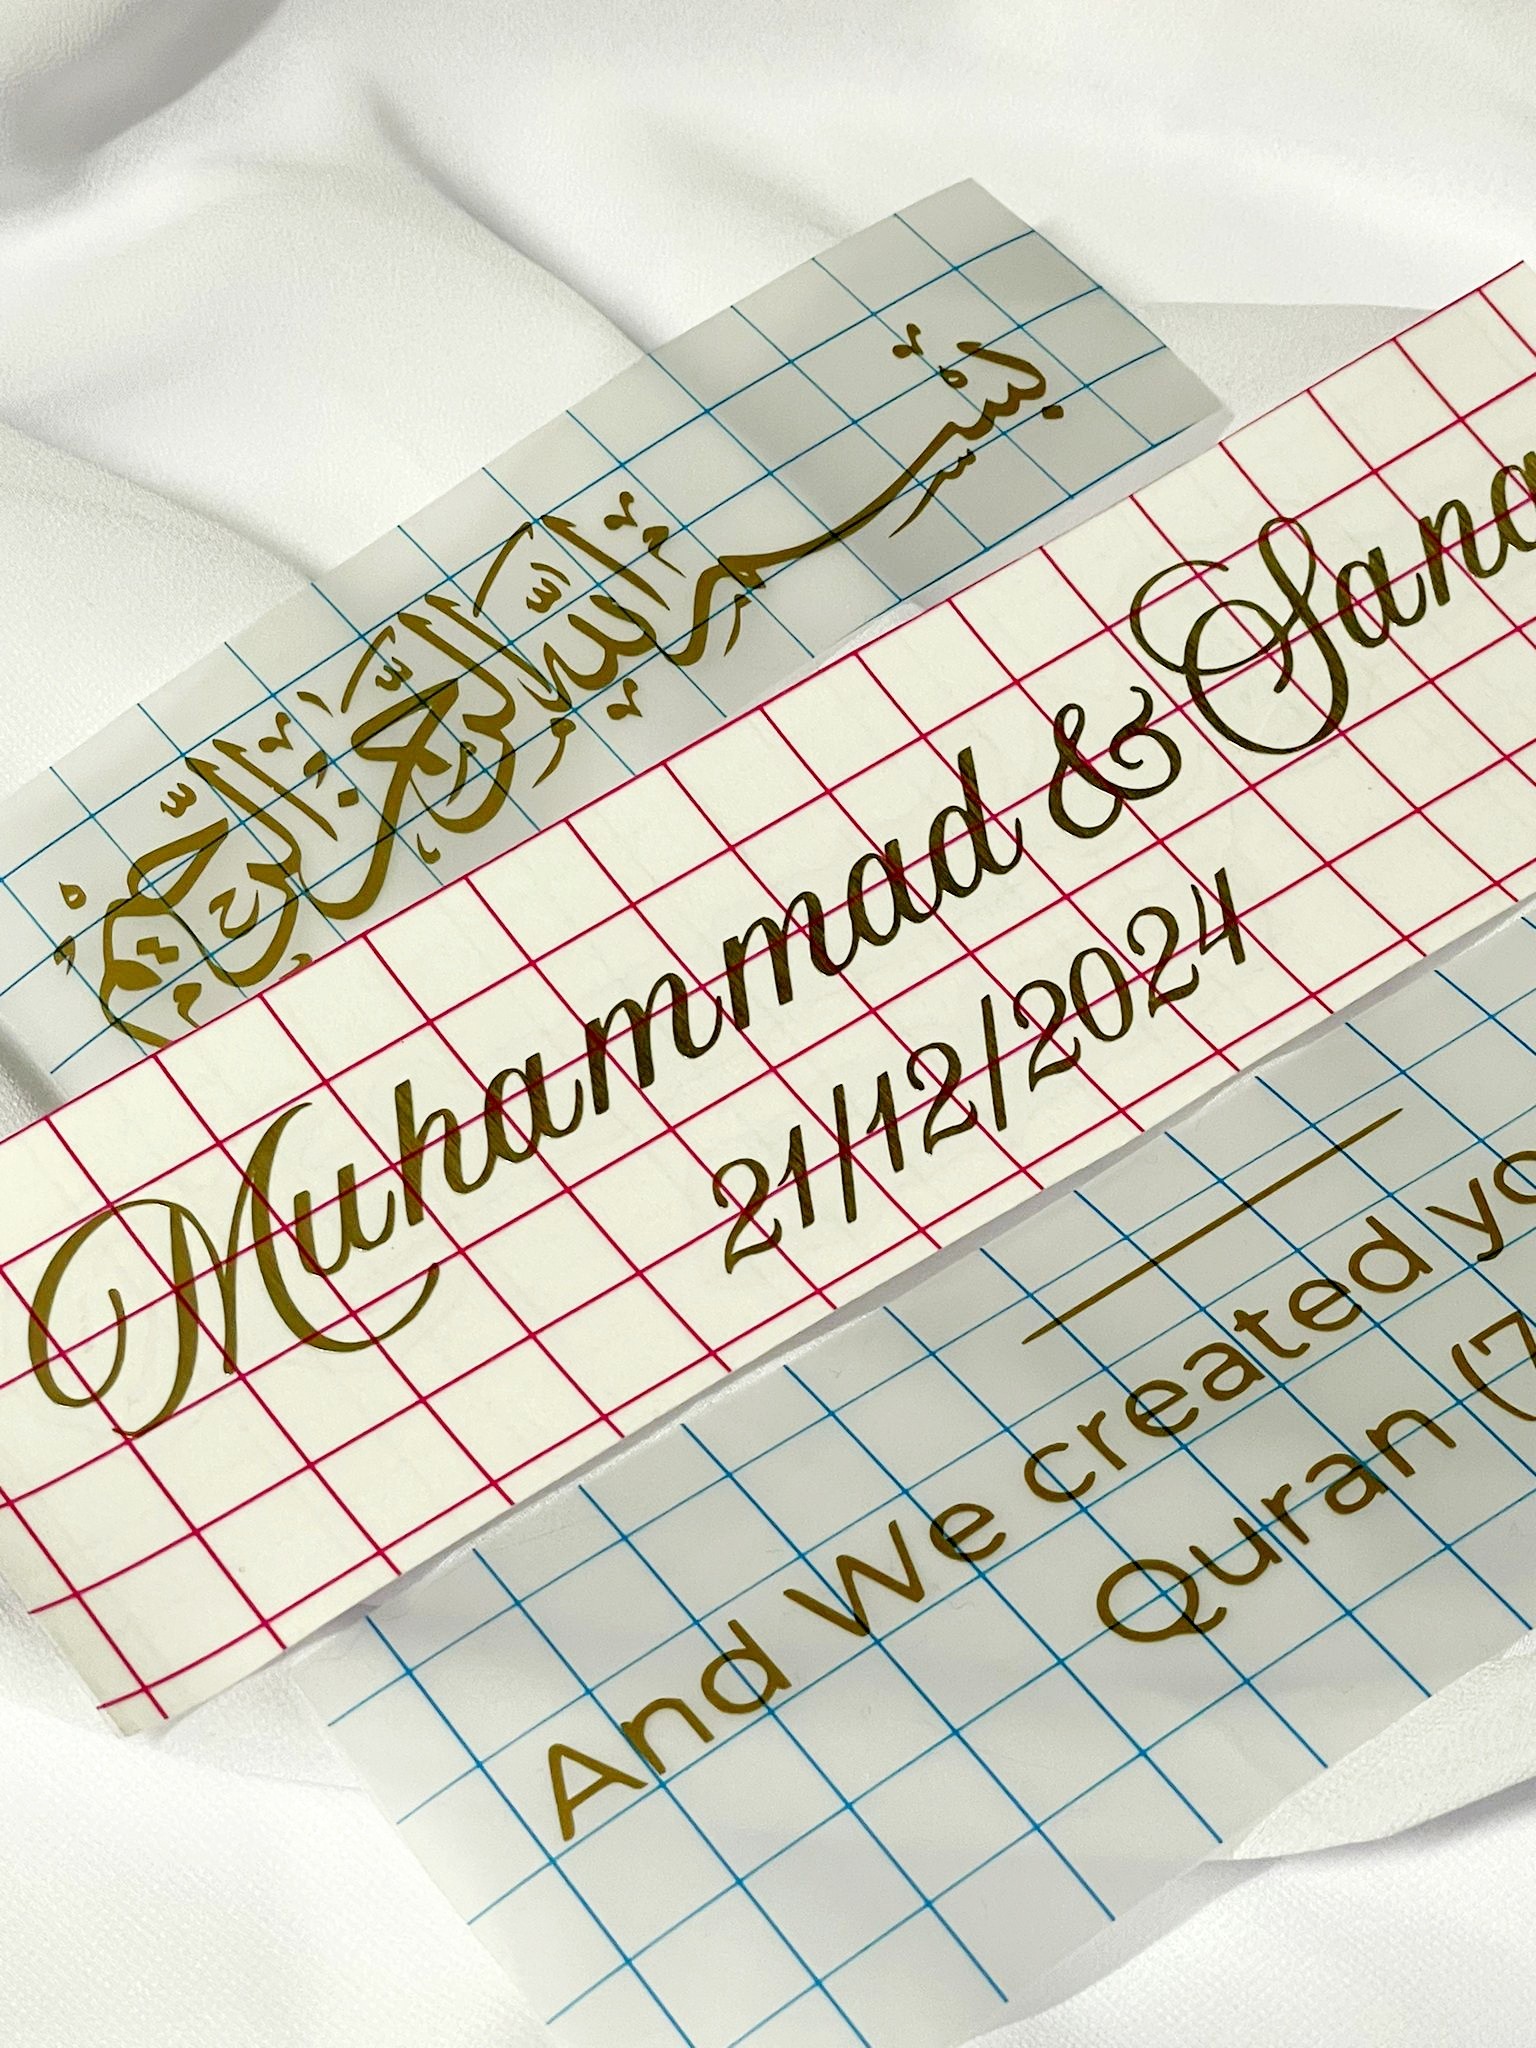 بِسْمِ اللَّهِ الرَّحْمَٰنِ الرَّحِيمِ
Muhammad & Sana
21/12/2024
And We created yo
Quran (7